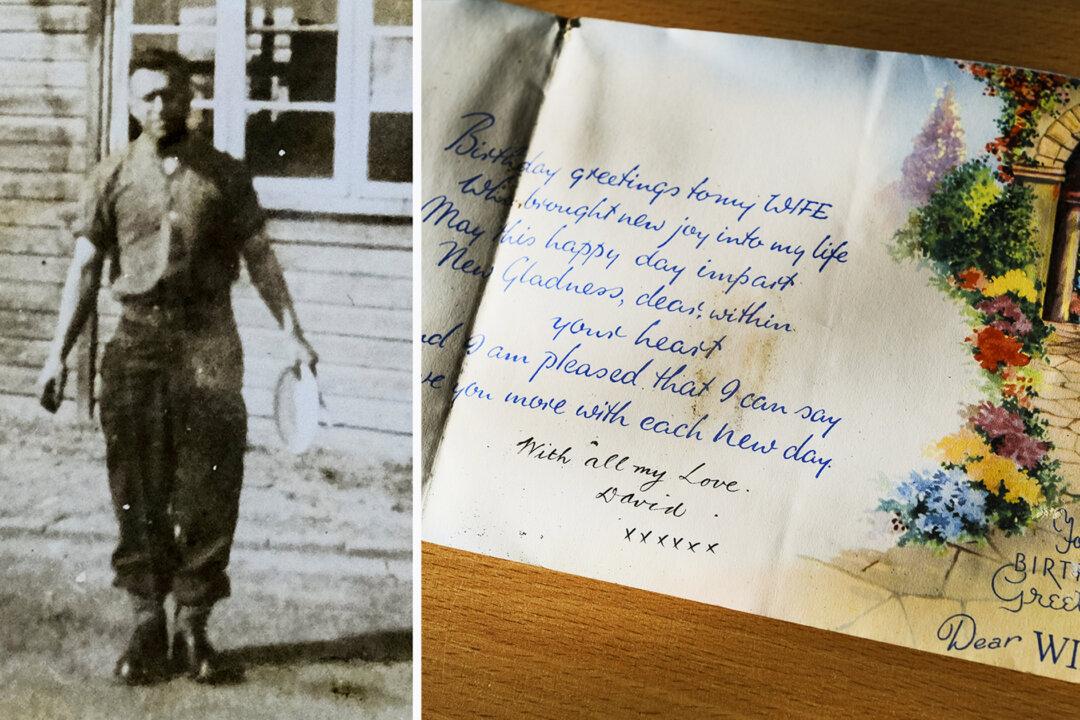 Birthday greetings to my WIFE
Who brought new joy into my life
May this happy day impart
New Gladness, dear, within
your heart
I am pleased that I can say
you more with each new day.
With all my Love.
David.
xxxxxx
BIRT
Gree
Dear WI